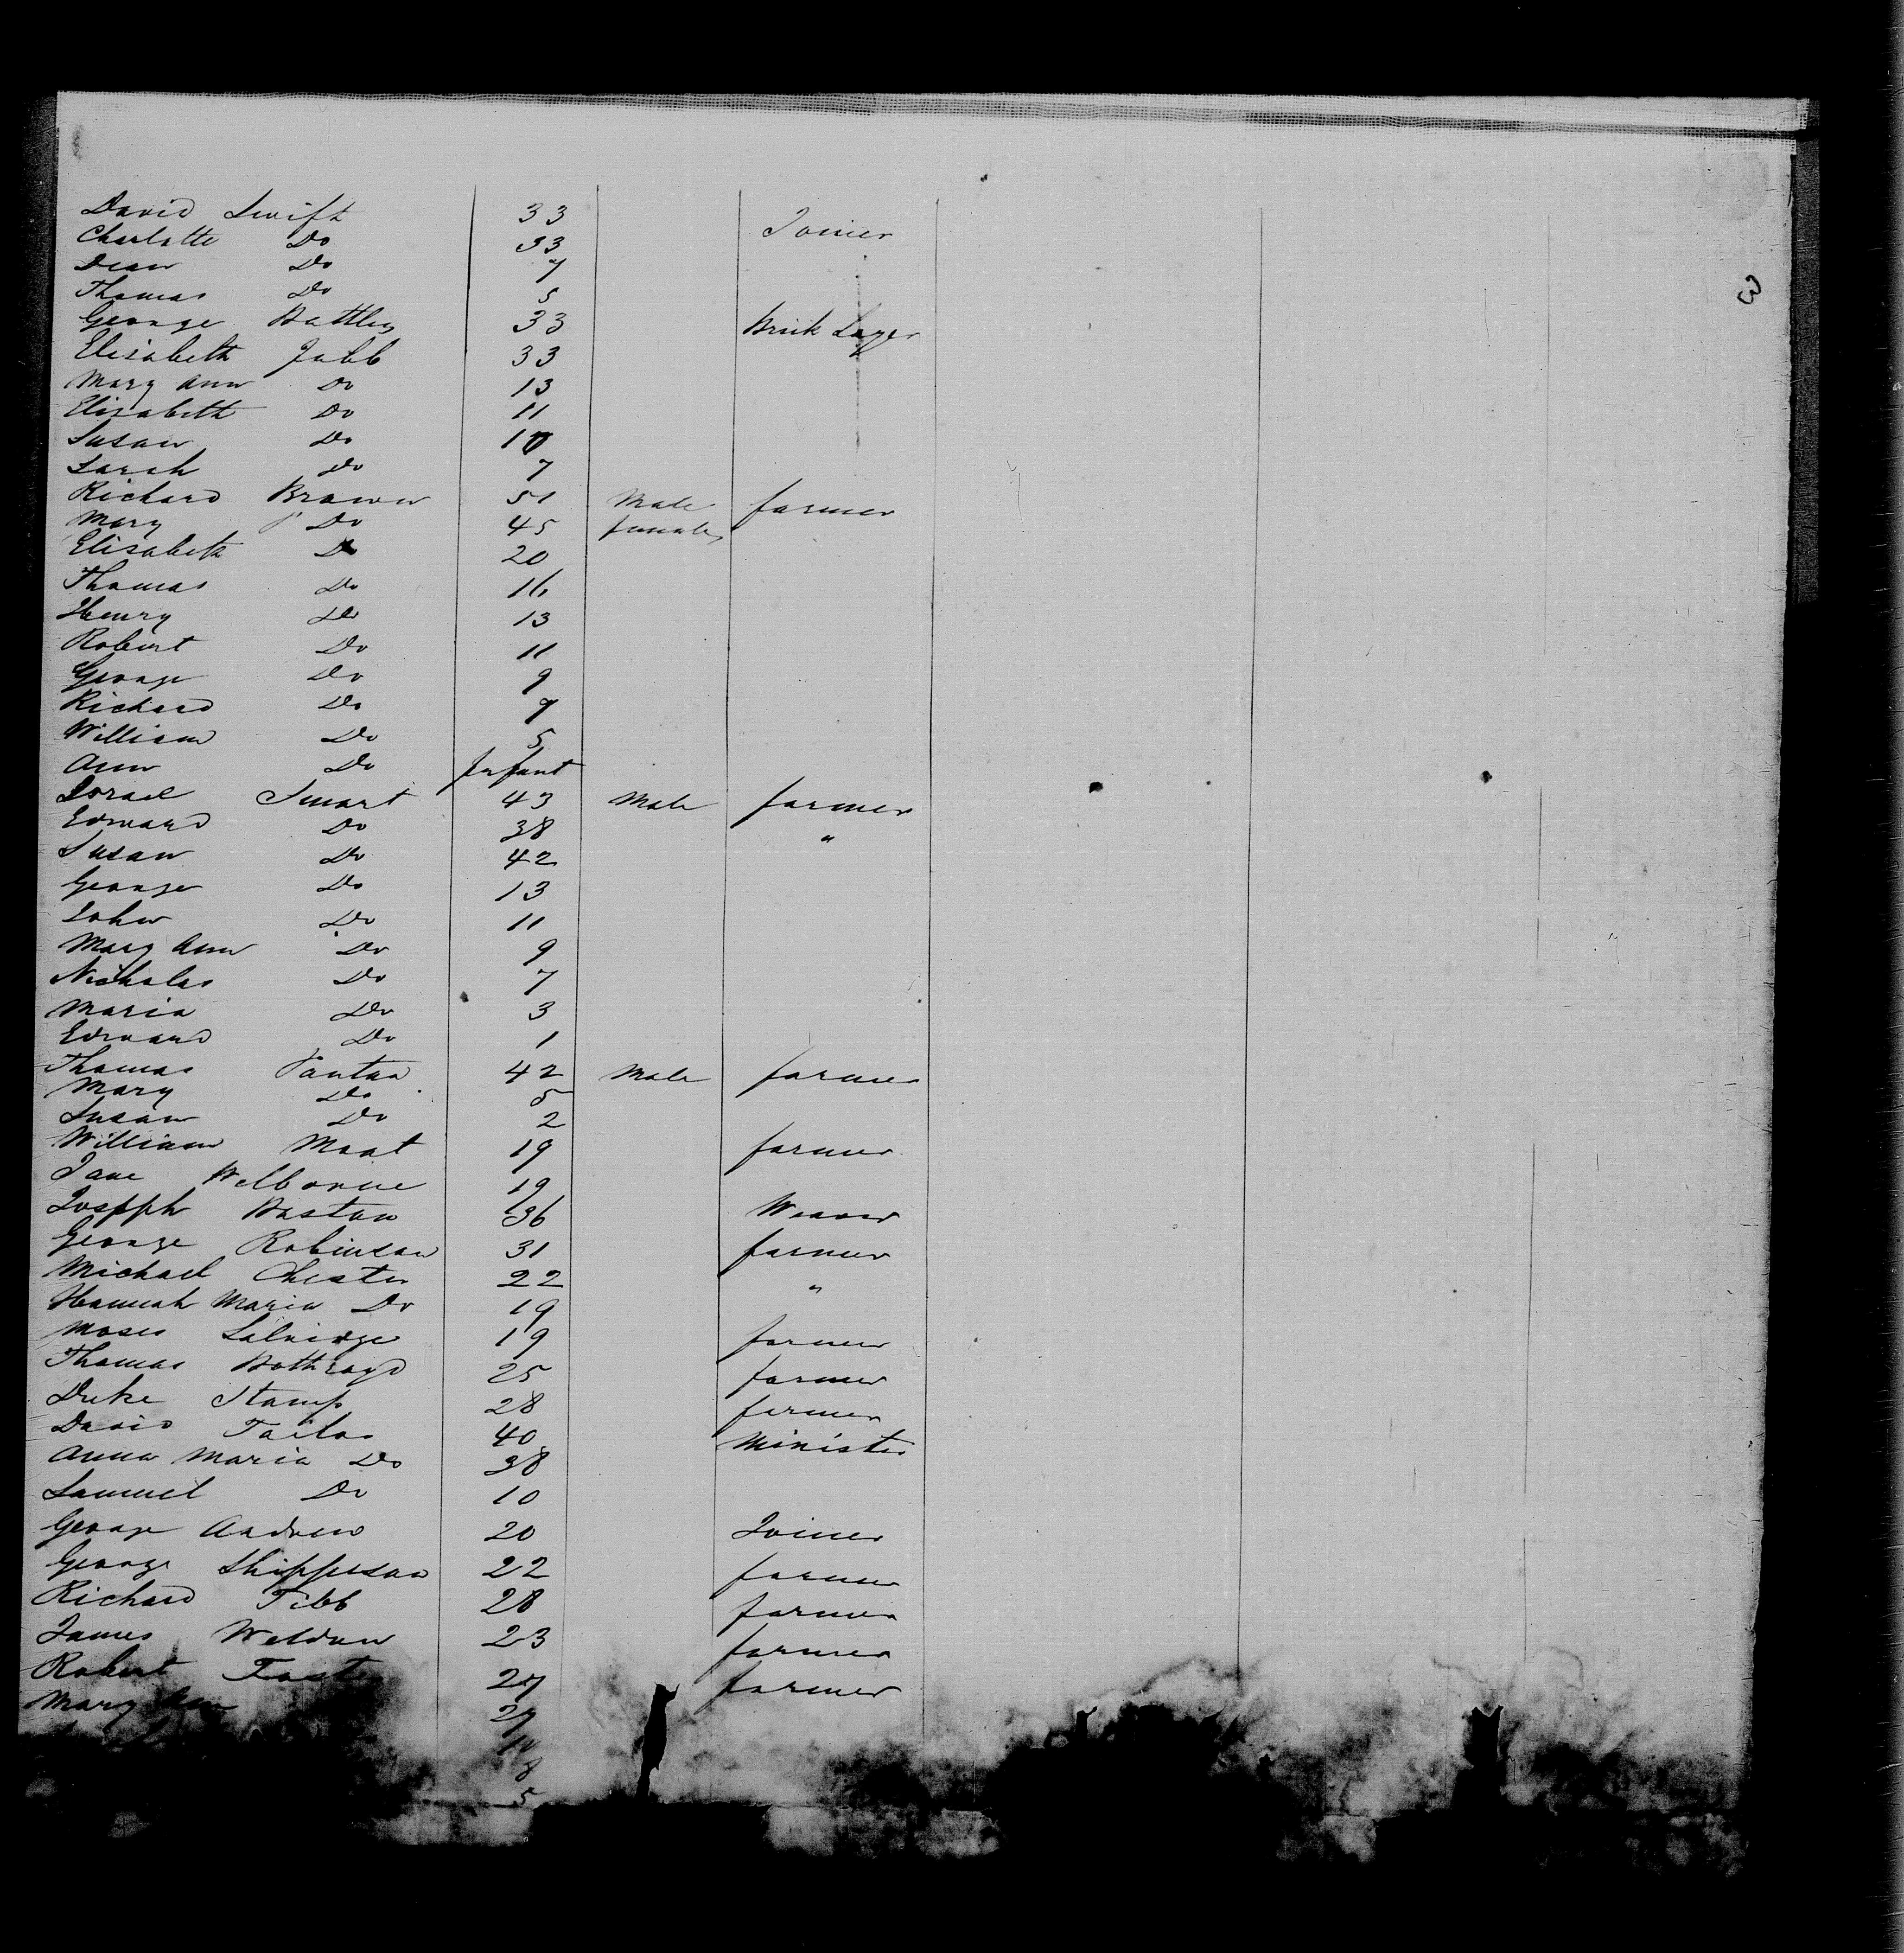 3
David Swift 33 Joiner
Charlotte Do 33
Dean Do 7
Thomas Do 5
George Battley 33 Brick Layer
Elisabeth Jubb 33
Mary Ann Do 13
Elisabeth Do 11
Susan Do 10
Sarah Do 7
Richard Brown 51 Male farmer
Mary Do 45 female
Elisabeth Do 20
Thomas Do 16
Henry Do 13
Robert Do 11
George Do 9
Richard Do 7
William Do 5
Ann Do Infant
Israel Smart 43 Male farmer
Edward Do 38 "
Susan Do 42
George Do 13
John Do 11
Mary Ann Do 9
Nicholas Do 7
Maria Do 3
Edward Do 1
Thomas 42 Male farmer
Mary Do 5
Susan Do 2
William Moat 19 farmer
Jane Welborne 19
Joseph Bastow 36 Weaver
George Robinson 31 farmer
Michael Chester 22 "
Hannah Maria Do 19
Moses Selvidge 19 farmer
Thomas Bothroyd 25 farmer
Duke Stamp 28 farmer
David Tailor 40 Minister
Anna Maria Do 38
Samuel Do 10
George Andrew 20 Joiner
George Shipperson 22 farmer
Richard Tibb 28 farmer
James Weldon 23 farmer
Robert 27 farmer
Mary Ann 27
8
5